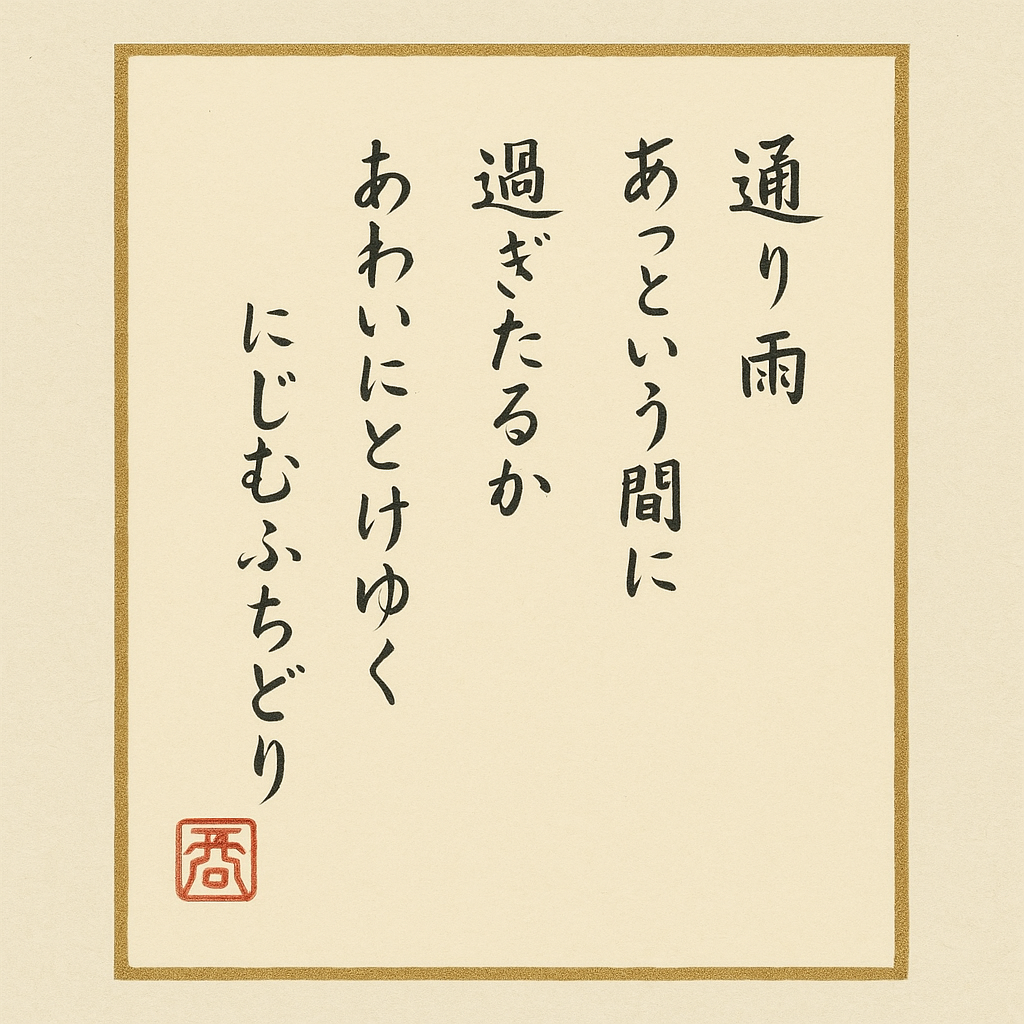 通り雨
あっという間に
過ぎたるか
あわいにとけゆく
にじむふちどり